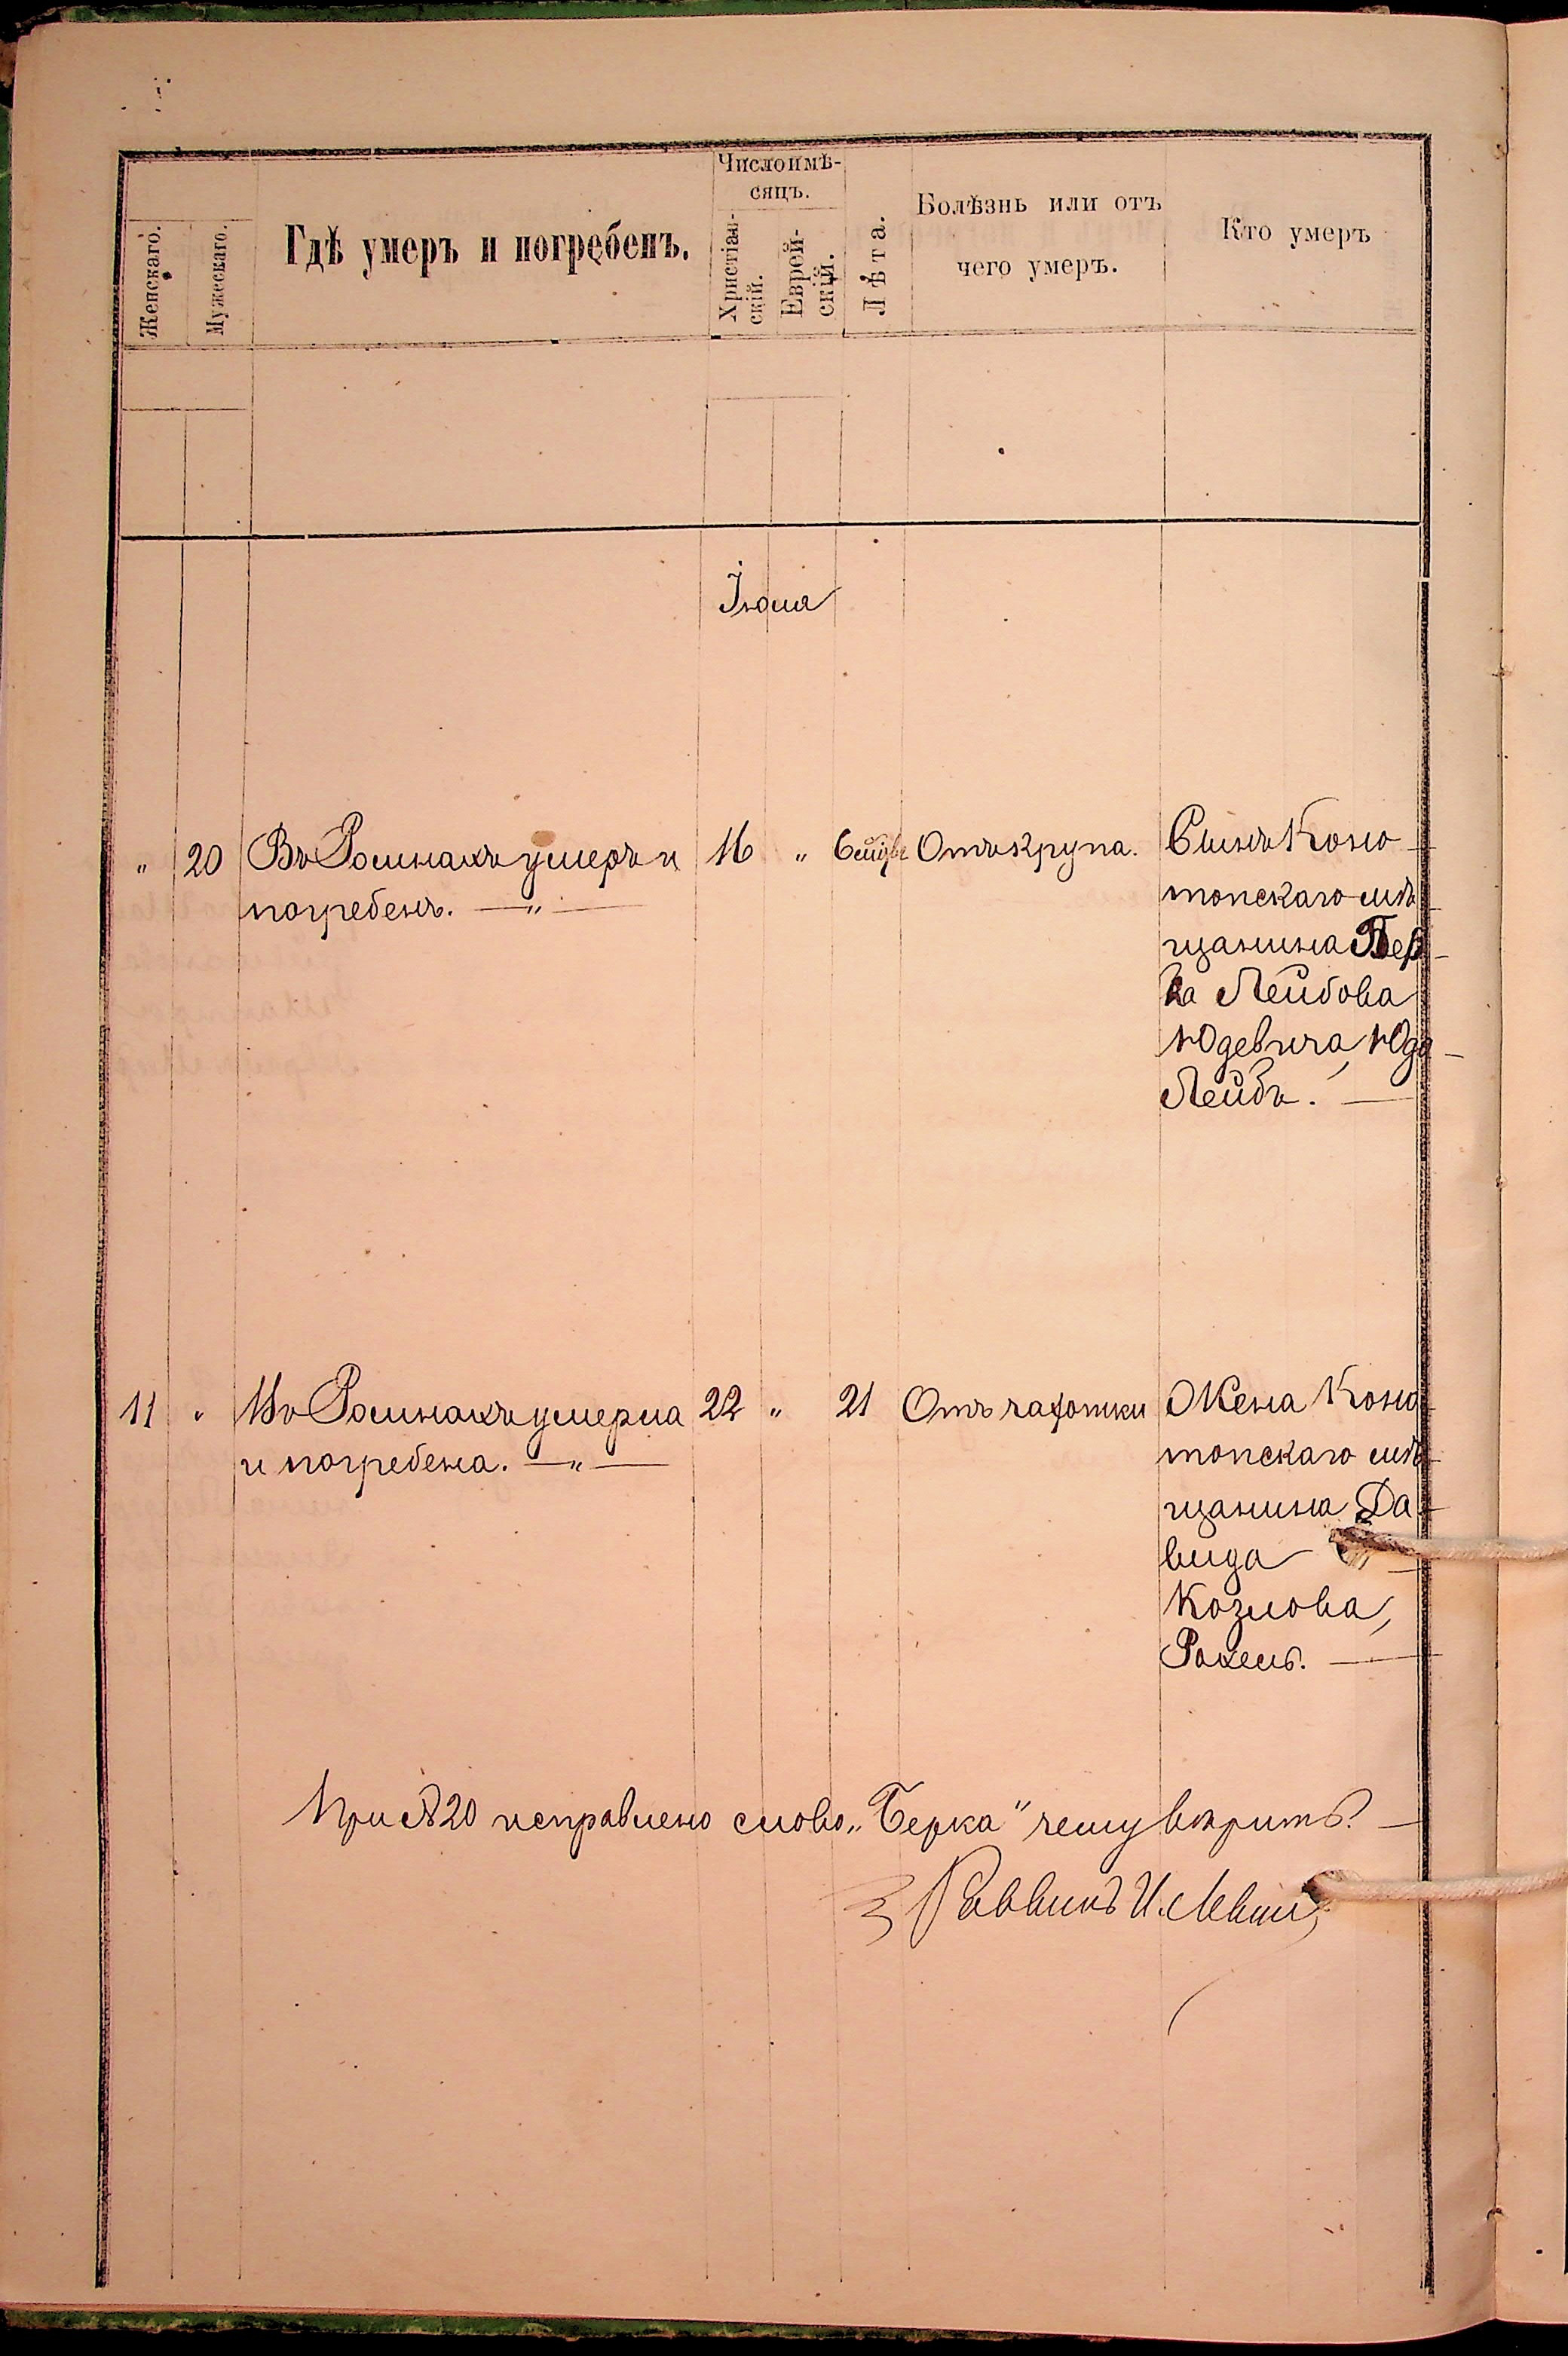 Женскаго.
Мужескаго.
Гдѣ умеръ и погребенъ.
Число и мѣ-
сяцъ.
Христіан-
скій.
Еврей-
скій.
Лѣта.
Болѣзнь или отъ
чего умеръ.
Кто умеръ
Іюля
" 20 Въ Ромнахъ умеръ и 16 " 6 Отъ крупа. Сынъ Коно-
погребенъ. —"— топскаго мѣ-
щанина Бер-
ка Лейбова
Юдевича, Юда-
Лейбъ. —
11 " Въ Ромнахъ умерла 22 " 21 Отъ чахотки Жена Коно-
и погребена. —"— топскаго мѣ-
щанина Да-
вида
Козлова,
Рохель. —
При № 20 исправлено слово „Берка" чему вѣрить. —
Раввинъ И. Левин